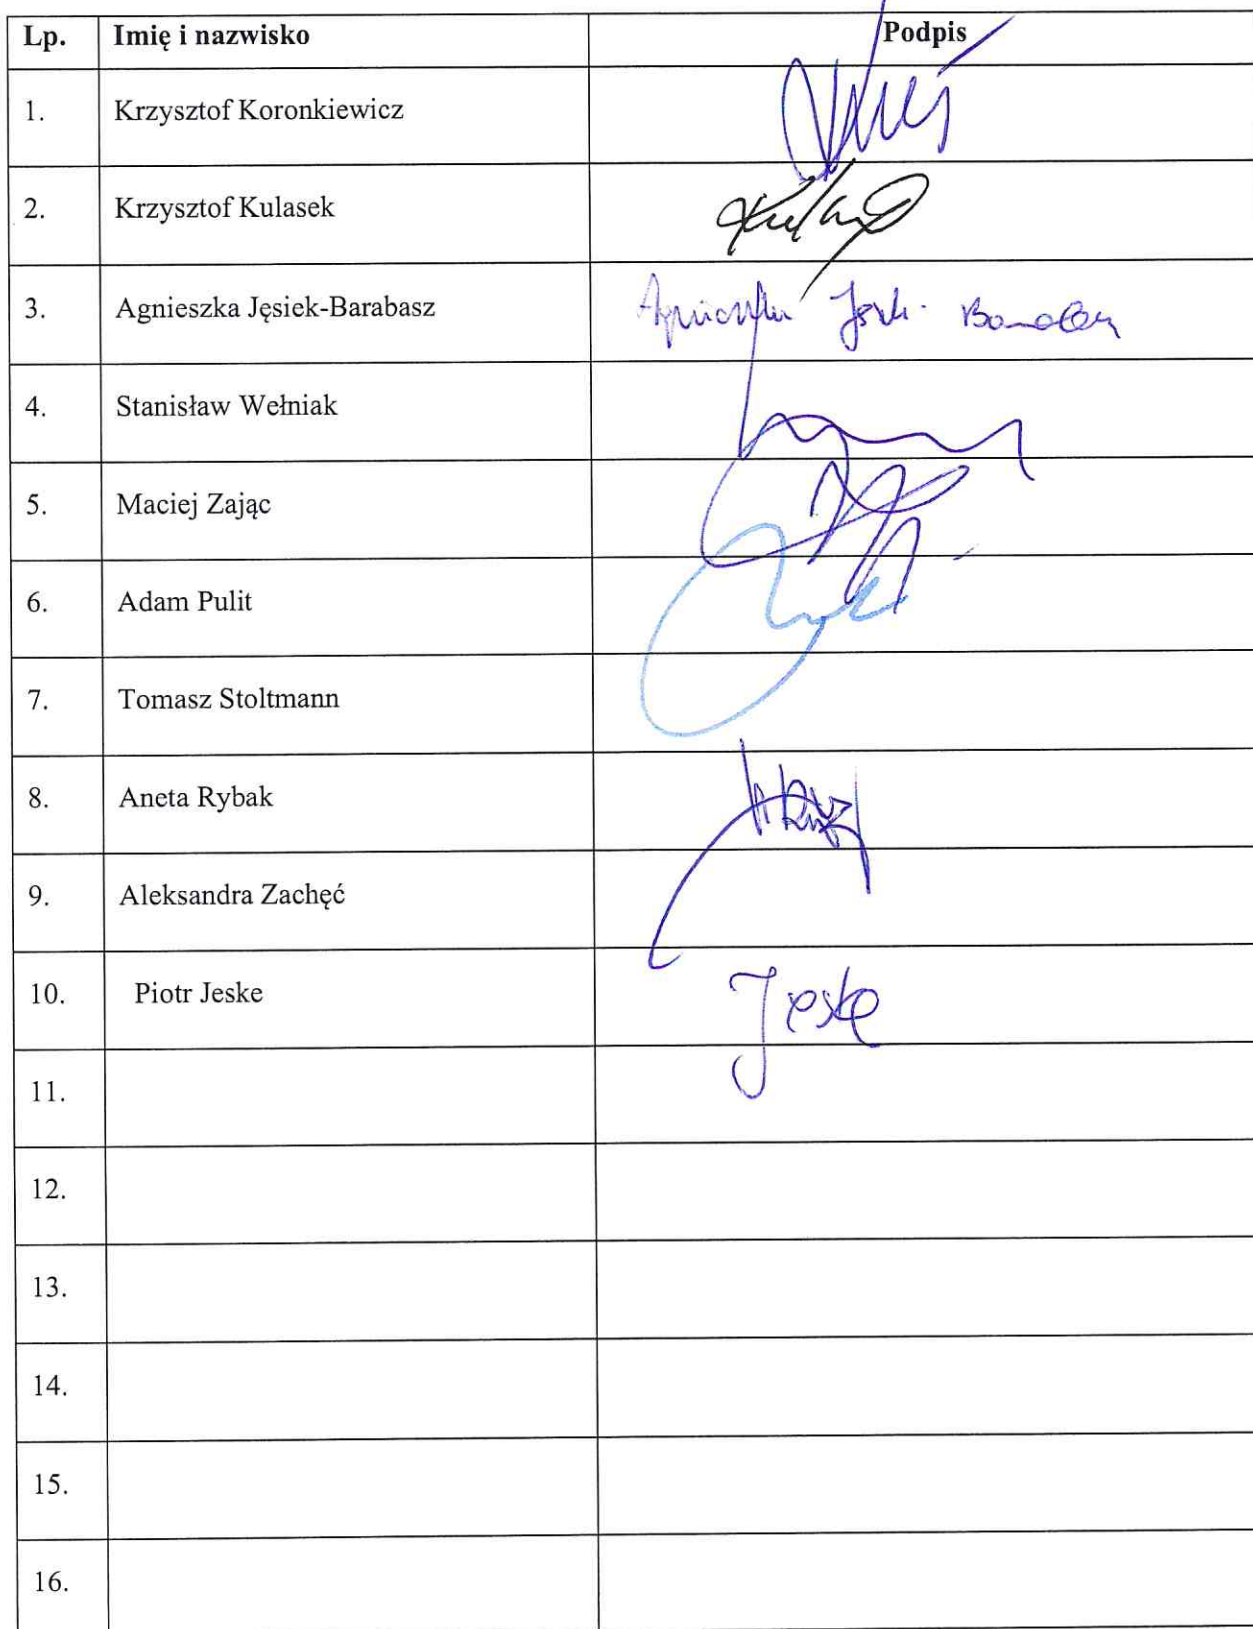 Lp. Imię i nazwisko Podpis
1. Krzysztof Koronkiewicz
2. Krzysztof Kulasek
3. Agnieszka Jęsiek-Barabasz Agnieszka
4. Stanisław Wełniak
5. Maciej Zając
6. Adam Pulit
7. Tomasz Stoltmann
8. Aneta Rybak
9. Aleksandra Zachęć
10. Piotr Jeske Jeske
11.
12.
13.
14.
15.
16.